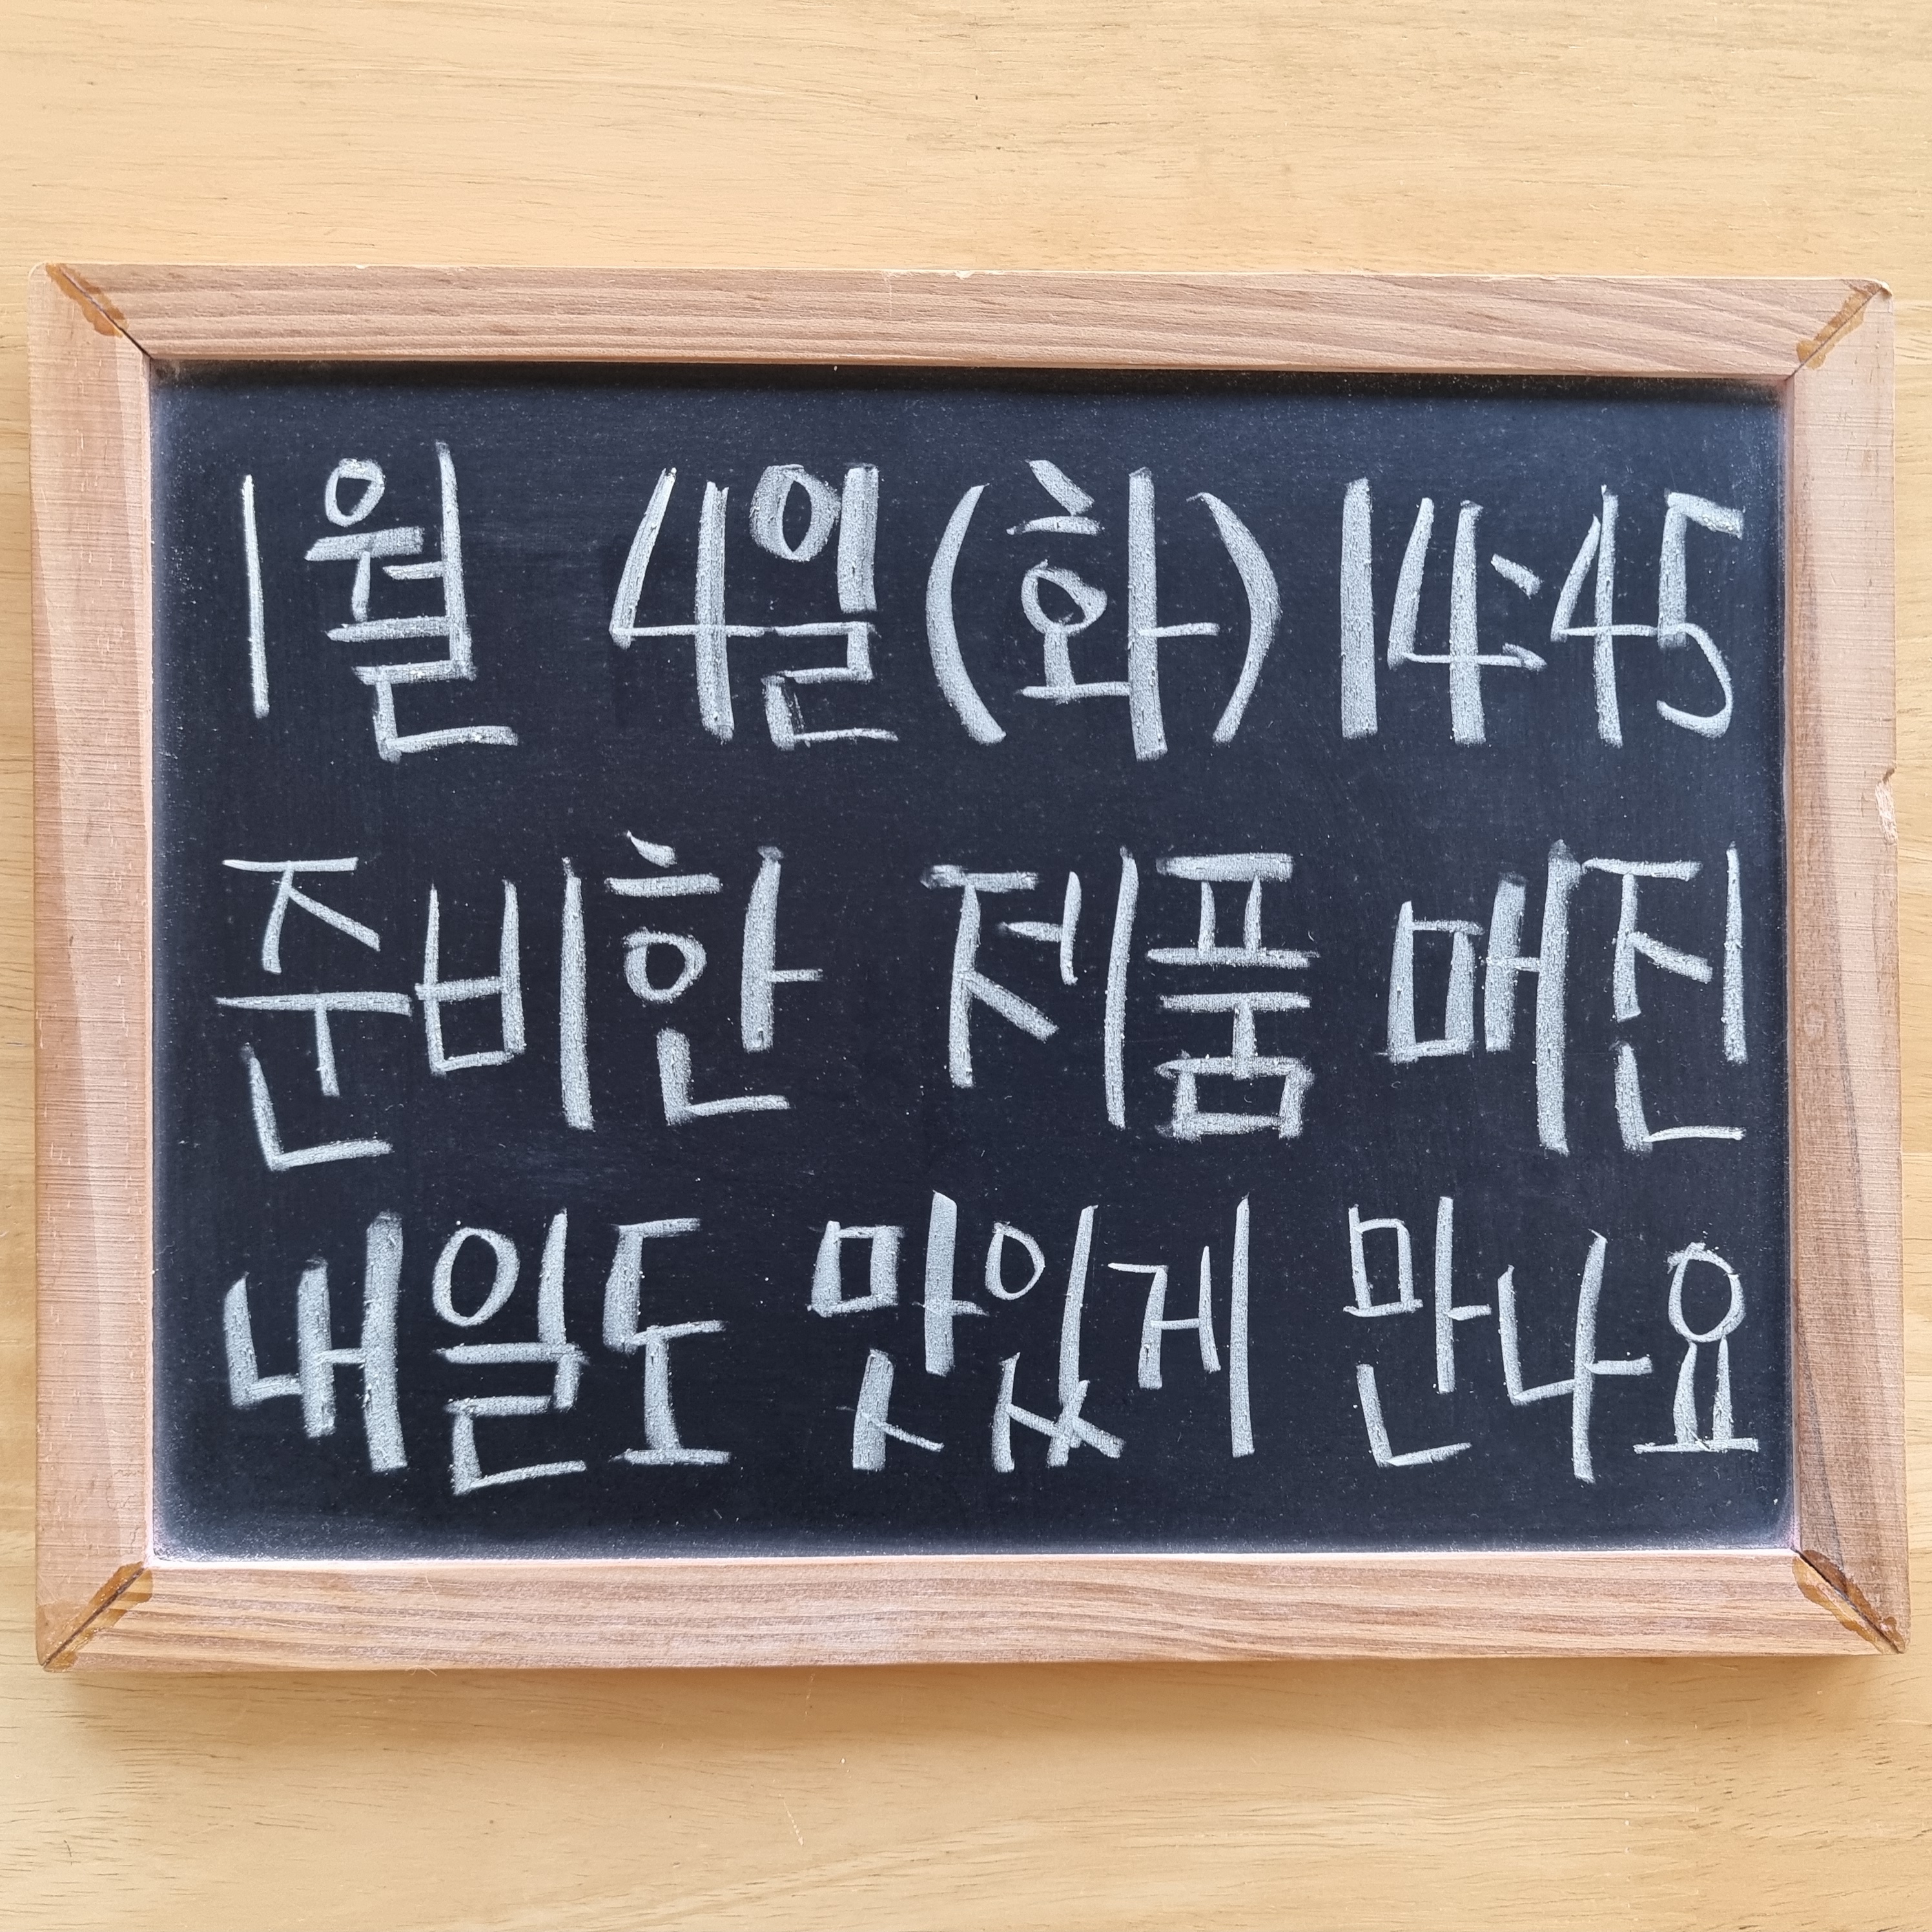 1월 4일(화) 14:45
준비한 제품 매진
내일도 맛있게 만나요